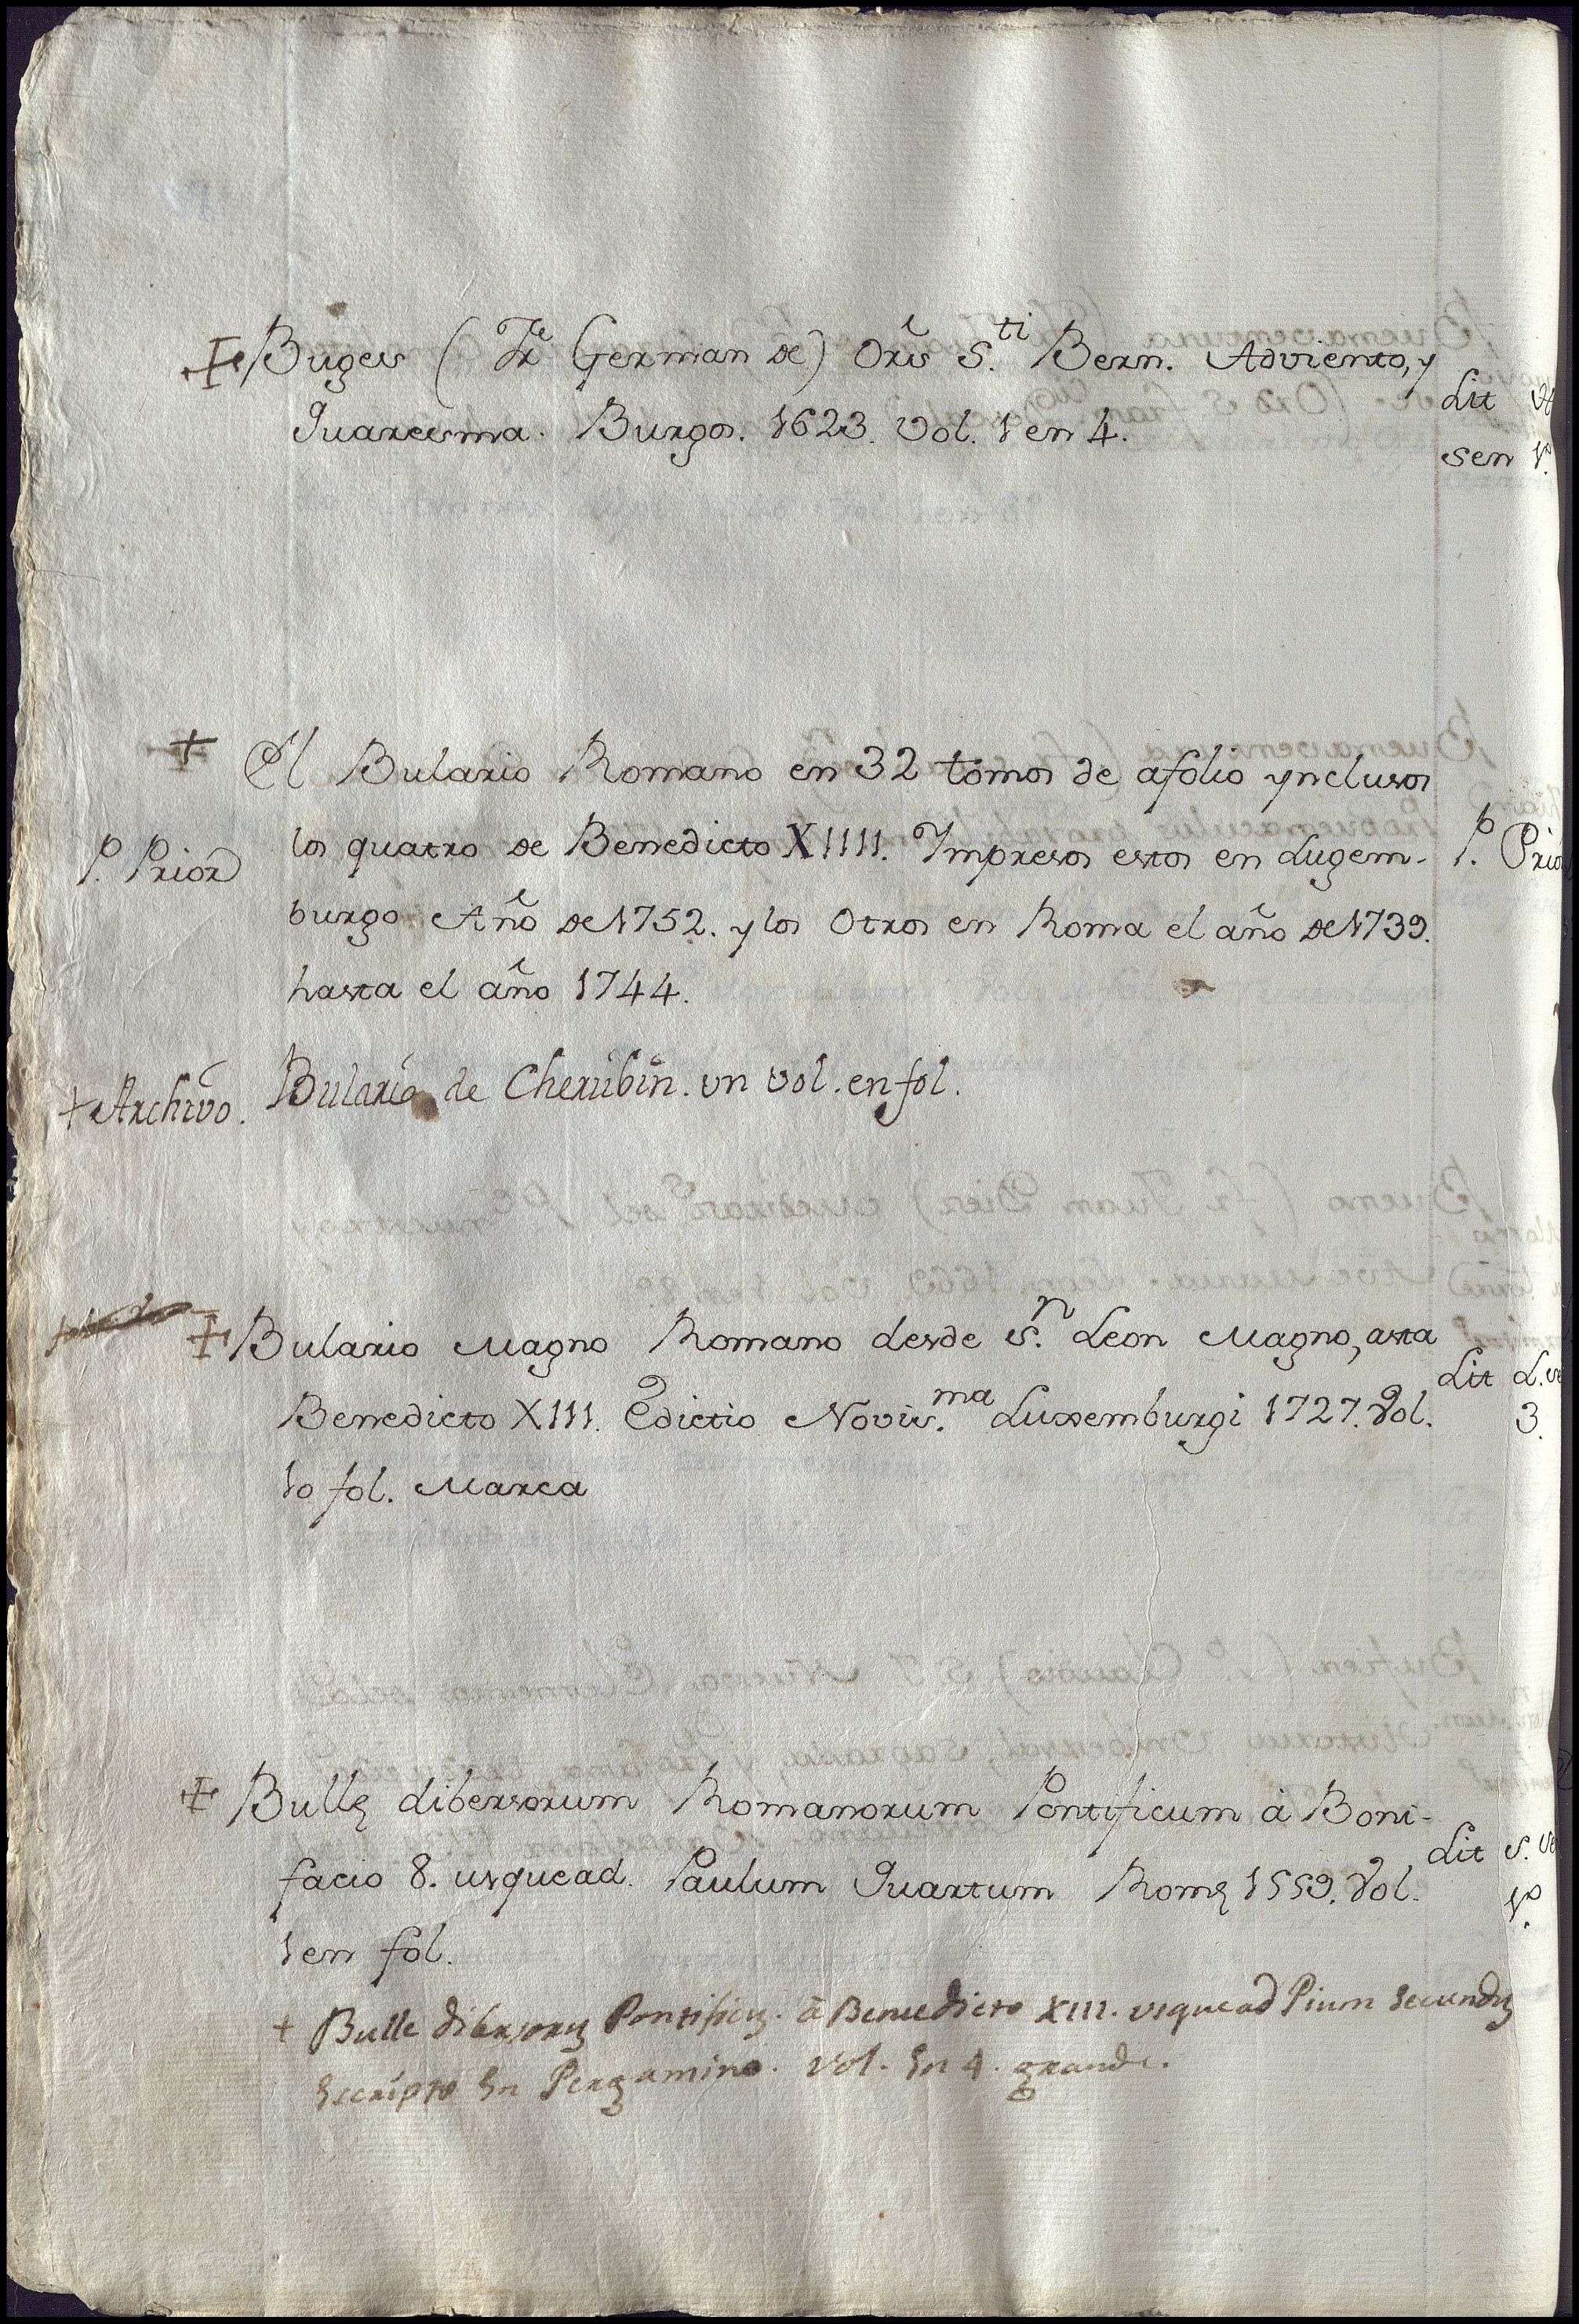 + Buges (Fr German de) Oris S.ti Bern. Adviento, y
Quaresma. Burgos. 1623. Vol. 1 en 4.
Lit
sen 1º
+ El Bulario Romano en 32 tomos de afolio ynclusos
P. Prior
los quatro de Benedicto XIIII. Impresos estos en Lugem-
P. Prior
burgo Año de 1752. y los Otros en Roma el año de 1739.
hasta el año 1744.
+ Archivo.
Bulario de Cherubin. un vol. en fol.
+ Bulario Magno Romano desde S.n Leon Magno, asta
Lit L.
Benedicto XIII. Edictio Novis.ma Luxemburgi 1727. Vol.
3.
10 fol. Marca
+ Bullę dibersorum Romanorum Pontificum à Boni-
Lit S.
facio 8. usque ad. Paulum Quartum Romę 1559. Vol.
1º
1 en fol.
+ Bulle dibersorũ Pontificũ. à Benedicto XIII. usque ad Pium Secundũ
Escripto En Pergamino. Vol. En 4. grande.